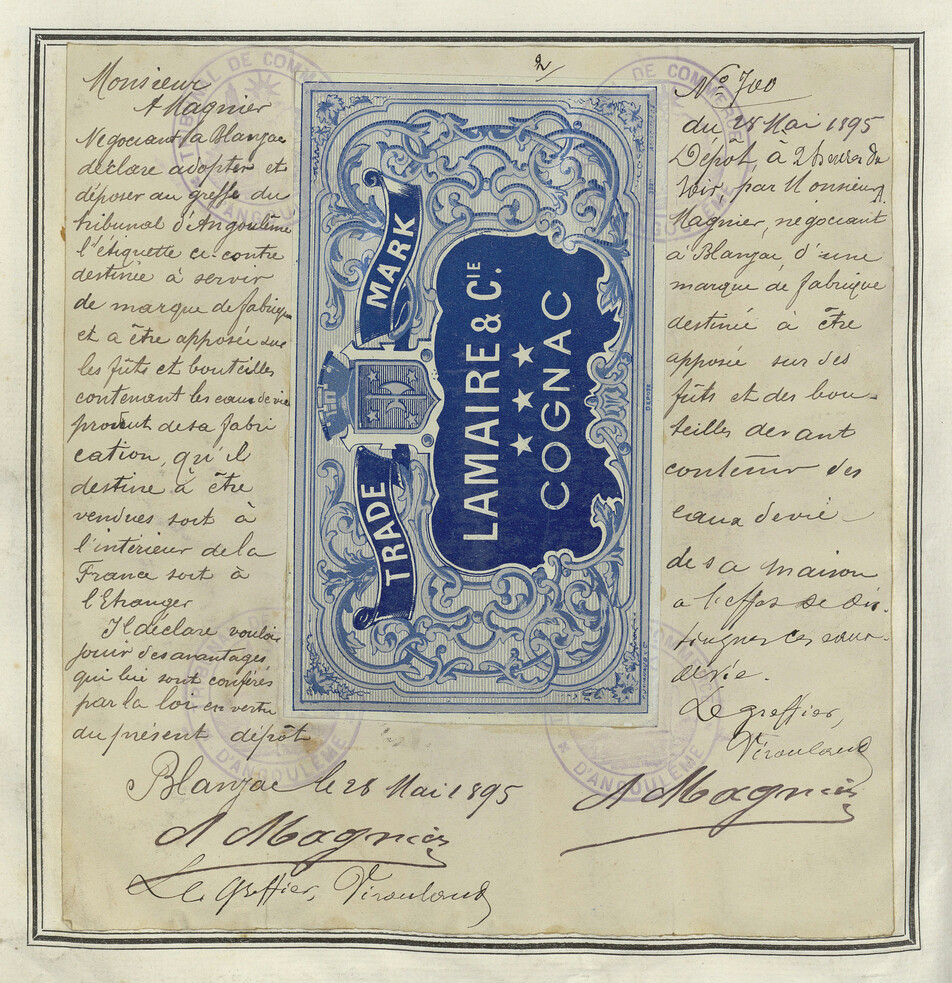 2/
Monsieur
A Magnier
Négociant à Blanzac
déclare adopter et
déposer au greffe du
tribunal d'Angoulême
l'étiquette ci-contre
destinée à servir
de marque de fabrique
et a être apposée sur
les fûts et bouteilles
contenant les eaux de vie
produit de sa fabri
cation, qu'il
destine à être
vendues soit à
l'intérieur de la
France soit à
l'Etranger
Il déclare vouloir
jouir des avantages
qui lui sont conférés
par la loi en vertu
du présent dépôt
Blanzac le 28 Mai 1895
A Magnier
Le greffier, Virouland
TRADE MARK
LAMAIRE & CIE.
COGNAC
DÉPOSÉ
No 700
du 28 Mai 1895
Dépôt, à 2 heures du
soir, par Monsieur A.
Magnier, négociant
à Blanzac d'une
marque de fabrique
destinée à être
apposée sur des
fûts et des bou-
teilles devant
contenir des
eaux de vie
de sa maison
a l'effet de dis-
tinguer ces eaux-
de vie.
Le greffier,
Virouland
A Magnier
TRIBUNAL DE COMMERCE
D'ANGOULÊME